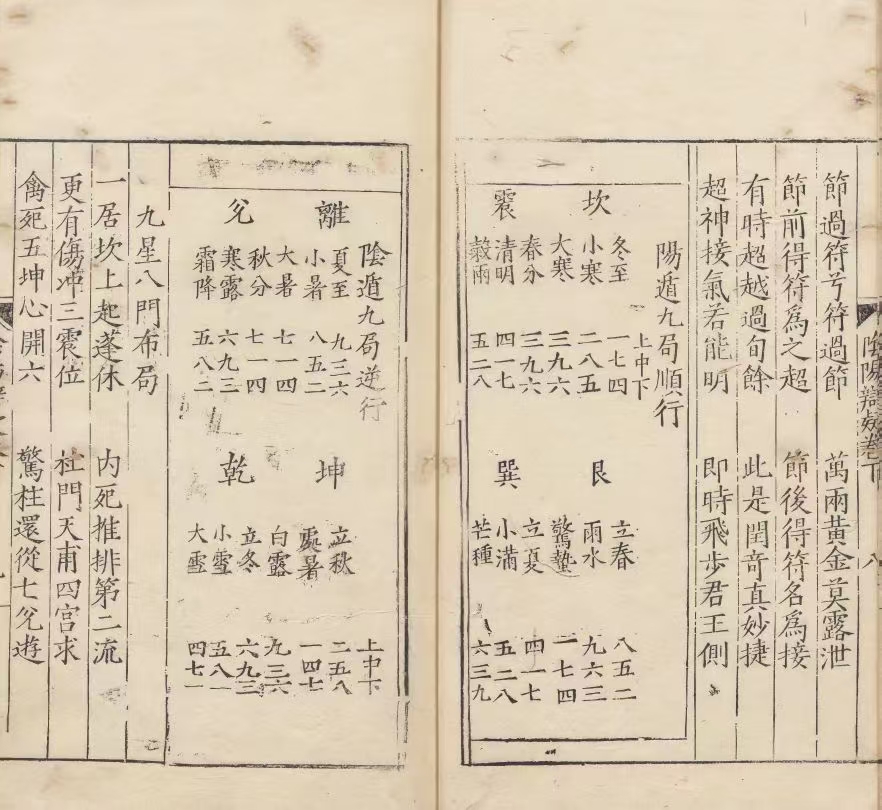 節過符兮符過節　萬兩黃金莫露泄
節前得符為之超　節後得符名為接
有時超越過旬餘　此是閏奇真妙捷
超神接氣若能明　即時飛步君王側
陽遁九局順行
上中下
坎
冬至　一七四
小寒　二八五
大寒　三九六
震
春分　三九六
清明　四一七
穀雨　五二八
艮
立春　八五二
雨水　九六三
驚蟄　一七四
巽
立夏　四一七
小滿　五二八
芒種　六三九
陰陽　卷下　八
陰遁九局逆行
離
夏至　九三六
小暑　八五二
大暑　七一四
兌
秋分　七一四
寒露　六九三
霜降　五八二
上中下
坤
立秋　二五八
處暑　一四七
白露　九三六
乾
立冬　六九三
小雪　五八一
大雪　四七一
九星八門布局
一居坎上起蓬休　內死推排第二流
更有傷冲三震位　杜門天甫四宮求
禽死五坤心開六　驚柱還從七兌遊